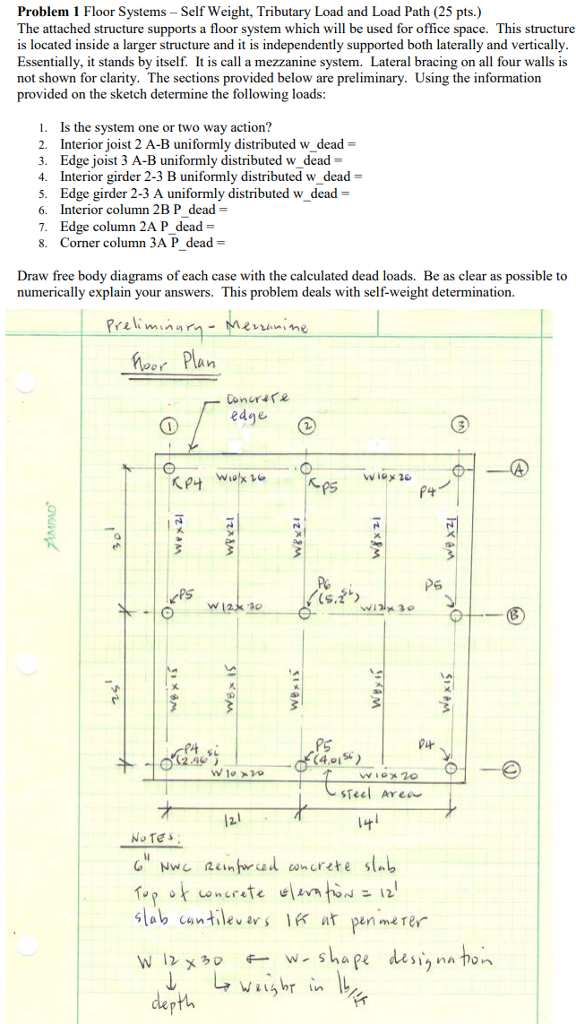 Problem 1 Floor Systems – Self Weight, Tributary Load and Load Path (25 pts.)
The attached structure supports a floor system which will be used for office space.  This structure
is located inside a larger structure and it is independently supported both laterally and vertically.
Essentially, it stands by itself.  It is call a mezzanine system.  Lateral bracing on all four walls is
not shown for clarity.  The sections provided below are preliminary.  Using the information
provided on the sketch determine the following loads:
1. Is the system one or two way action?
2. Interior joist 2 A-B uniformly distributed w_dead =
3. Edge joist 3 A-B uniformly distributed w_dead =
4. Interior girder 2-3 B uniformly distributed w_dead =
5. Edge girder 2-3 A uniformly distributed w_dead =
6. Interior column 2B P_dead =
7. Edge column 2A P_dead =
8. Corner column 3A P_dead =
Draw free body diagrams of each case with the calculated dead loads.  Be as clear as possible to
numerically explain your answers.  This problem deals with self-weight determination.
Preliminary - Mezzanine
Floor Plan
Concrete
edge
1
2
3
A
P4 W10x26
P5
W10x26
P4
AMPAD
30'
W8x21
W8x21
W8x21
W8x21
W8x21
P5
W12x30
P6
(5.2si)
W12x30
P5
B
25'
W8x15
W8x15
W8x15
W8x15
W8x15
P4
(2.96si)
W10x20
P5
(4.01si)
W10x20
P4
C
steel Area
12'
14'
NOTES:
6" NWC Reinforced concrete slab
Top of concrete elevation = 12'
slab cantilevers 1ft at perimeter
W 12 x 30 ← W-shape designation
↓ ↳ weight in lb/ft
depth